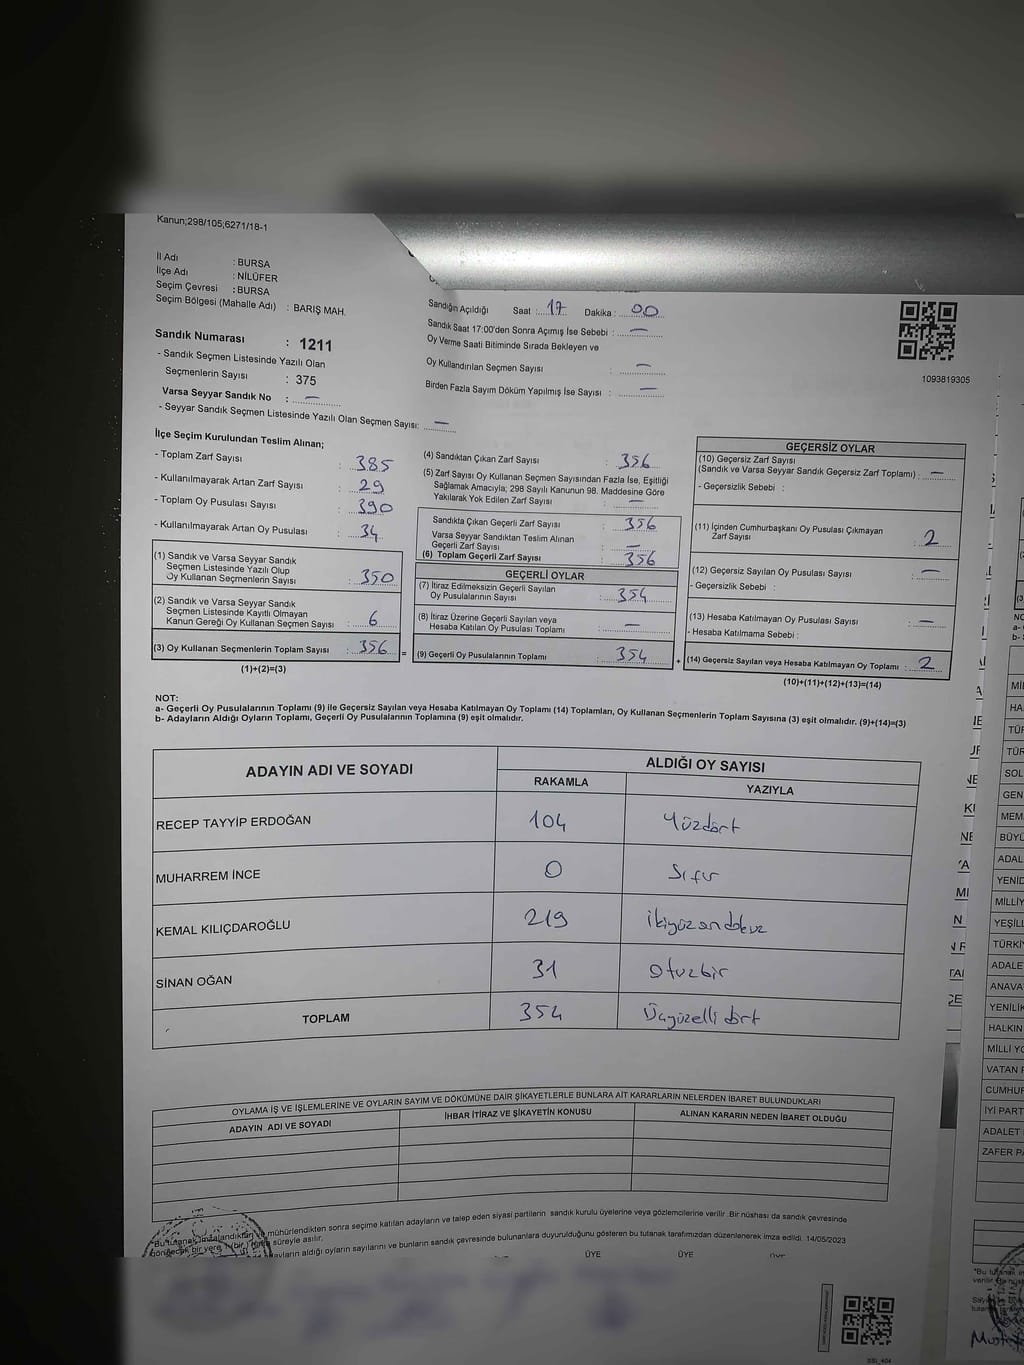 Kanun;298/105;6271/18-1
İl Adı : BURSA
İlçe Adı : NİLÜFER
Seçim Çevresi : BURSA
Seçim Bölgesi (Mahalle Adı) : BARIŞ MAH.
Sandık Numarası : 1211
- Sandık Seçmen Listesinde Yazılı Olan
Seçmenlerin Sayısı : 375
Varsa Seyyar Sandık No : —
- Seyyar Sandık Seçmen Listesinde Yazılı Olan Seçmen Sayısı: —
Sandığın Açıldığı Saat : 17 Dakika : 00
Sandık Saat 17:00'den Sonra Açılmış İse Sebebi : —
Oy Verme Saati Bitiminde Sırada Bekleyen ve
Oy Kullandırılan Seçmen Sayısı : —
Birden Fazla Sayım Döküm Yapılmış İse Sayısı : —
1093819305
İlçe Seçim Kurulundan Teslim Alınan;
- Toplam Zarf Sayısı : 385
- Kullanılmayarak Artan Zarf Sayısı : 29
- Toplam Oy Pusulası Sayısı : 390
- Kullanılmayarak Artan Oy Pusulası : 34
(1) Sandık ve Varsa Seyyar Sandık
Seçmen Listesinde Yazılı Olup
Oy Kullanan Seçmenlerin Sayısı : 350
(2) Sandık ve Varsa Seyyar Sandık
Seçmen Listesinde Kayıtlı Olmayan
Kanun Gereği Oy Kullanan Seçmen Sayısı : 6
(3) Oy Kullanan Seçmenlerin Toplam Sayısı : 356
(1)+(2)=(3)
(4) Sandıktan Çıkan Zarf Sayısı : 356
(5) Zarf Sayısı Oy Kullanan Seçmen Sayısından Fazla İse, Eşitliği
Sağlamak Amacıyla; 298 Sayılı Kanunun 98. Maddesine Göre
Yakılarak Yok Edilen Zarf Sayısı : —
Sandıkta Çıkan Geçerli Zarf Sayısı : 356
Varsa Seyyar Sandıktan Teslim Alınan
Geçerli Zarf Sayısı : —
(6) Toplam Geçerli Zarf Sayısı : 356
GEÇERLİ OYLAR
(7) İtiraz Edilmeksizin Geçerli Sayılan
Oy Pusulalarının Sayısı : 354
(8) İtiraz Üzerine Geçerli Sayılan veya
Hesaba Katılan Oy Pusulası Toplamı : —
= (9) Geçerli Oy Pusulalarının Toplamı : 354
GEÇERSİZ OYLAR
(10) Geçersiz Zarf Sayısı
(Sandık ve Varsa Seyyar Sandık Geçersiz Zarf Toplamı) : —
- Geçersizlik Sebebi :
(11) İçinden Cumhurbaşkanı Oy Pusulası Çıkmayan
Zarf Sayısı : 2
(12) Geçersiz Sayılan Oy Pusulası Sayısı : —
- Geçersizlik Sebebi :
(13) Hesaba Katılmayan Oy Pusulası Sayısı : —
- Hesaba Katılmama Sebebi :
+ (14) Geçersiz Sayılan veya Hesaba Katılmayan Oy Toplamı : 2
(10)+(11)+(12)+(13)=(14)
NOT:
a- Geçerli Oy Pusulalarının Toplamı (9) ile Geçersiz Sayılan veya Hesaba Katılmayan Oy Toplamı (14) Toplamları, Oy Kullanan Seçmenlerin Toplam Sayısına (3) eşit olmalıdır. (9)+(14)=(3)
b- Adayların Aldığı Oyların Toplamı, Geçerli Oy Pusulalarının Toplamına (9) eşit olmalıdır.
ADAYIN ADI VE SOYADI
ALDIĞI OY SAYISI
RAKAMLA YAZIYLA
RECEP TAYYİP ERDOĞAN 104 Yüzdört
MUHARREM İNCE 0 Sıfır
KEMAL KILIÇDAROĞLU 219 ikiyüzondokuz
SİNAN OĞAN 31 otuzbir
TOPLAM 354 Üçyüzelli dört
OYLAMA İŞ VE İŞLEMLERİNE VE OYLARIN SAYIM VE DÖKÜMÜNE DAİR ŞİKAYETLERLE BUNLARA AİT KARARLARIN NELERDEN İBARET BULUNDUKLARI
ADAYIN ADI VE SOYADI İHBAR İTİRAZ VE ŞİKAYETİN KONUSU ALINAN KARARIN NEDEN İBARET OLDUĞU
mühürlendikten sonra seçime katılan adayların ve talep eden siyasi partilerin sandık kurulu üyelerine veya gözlemcilerine verilir. Bir nüshası da sandık çevresinde
süreyle asılır.
aldığı oyların sayılarını ve bunların sandık çevresinde bulunanlara duyurulduğunu gösteren bu tutanak tarafımızdan düzenlenerek imza edildi. 14/05/2023
ÜYE ÜYE